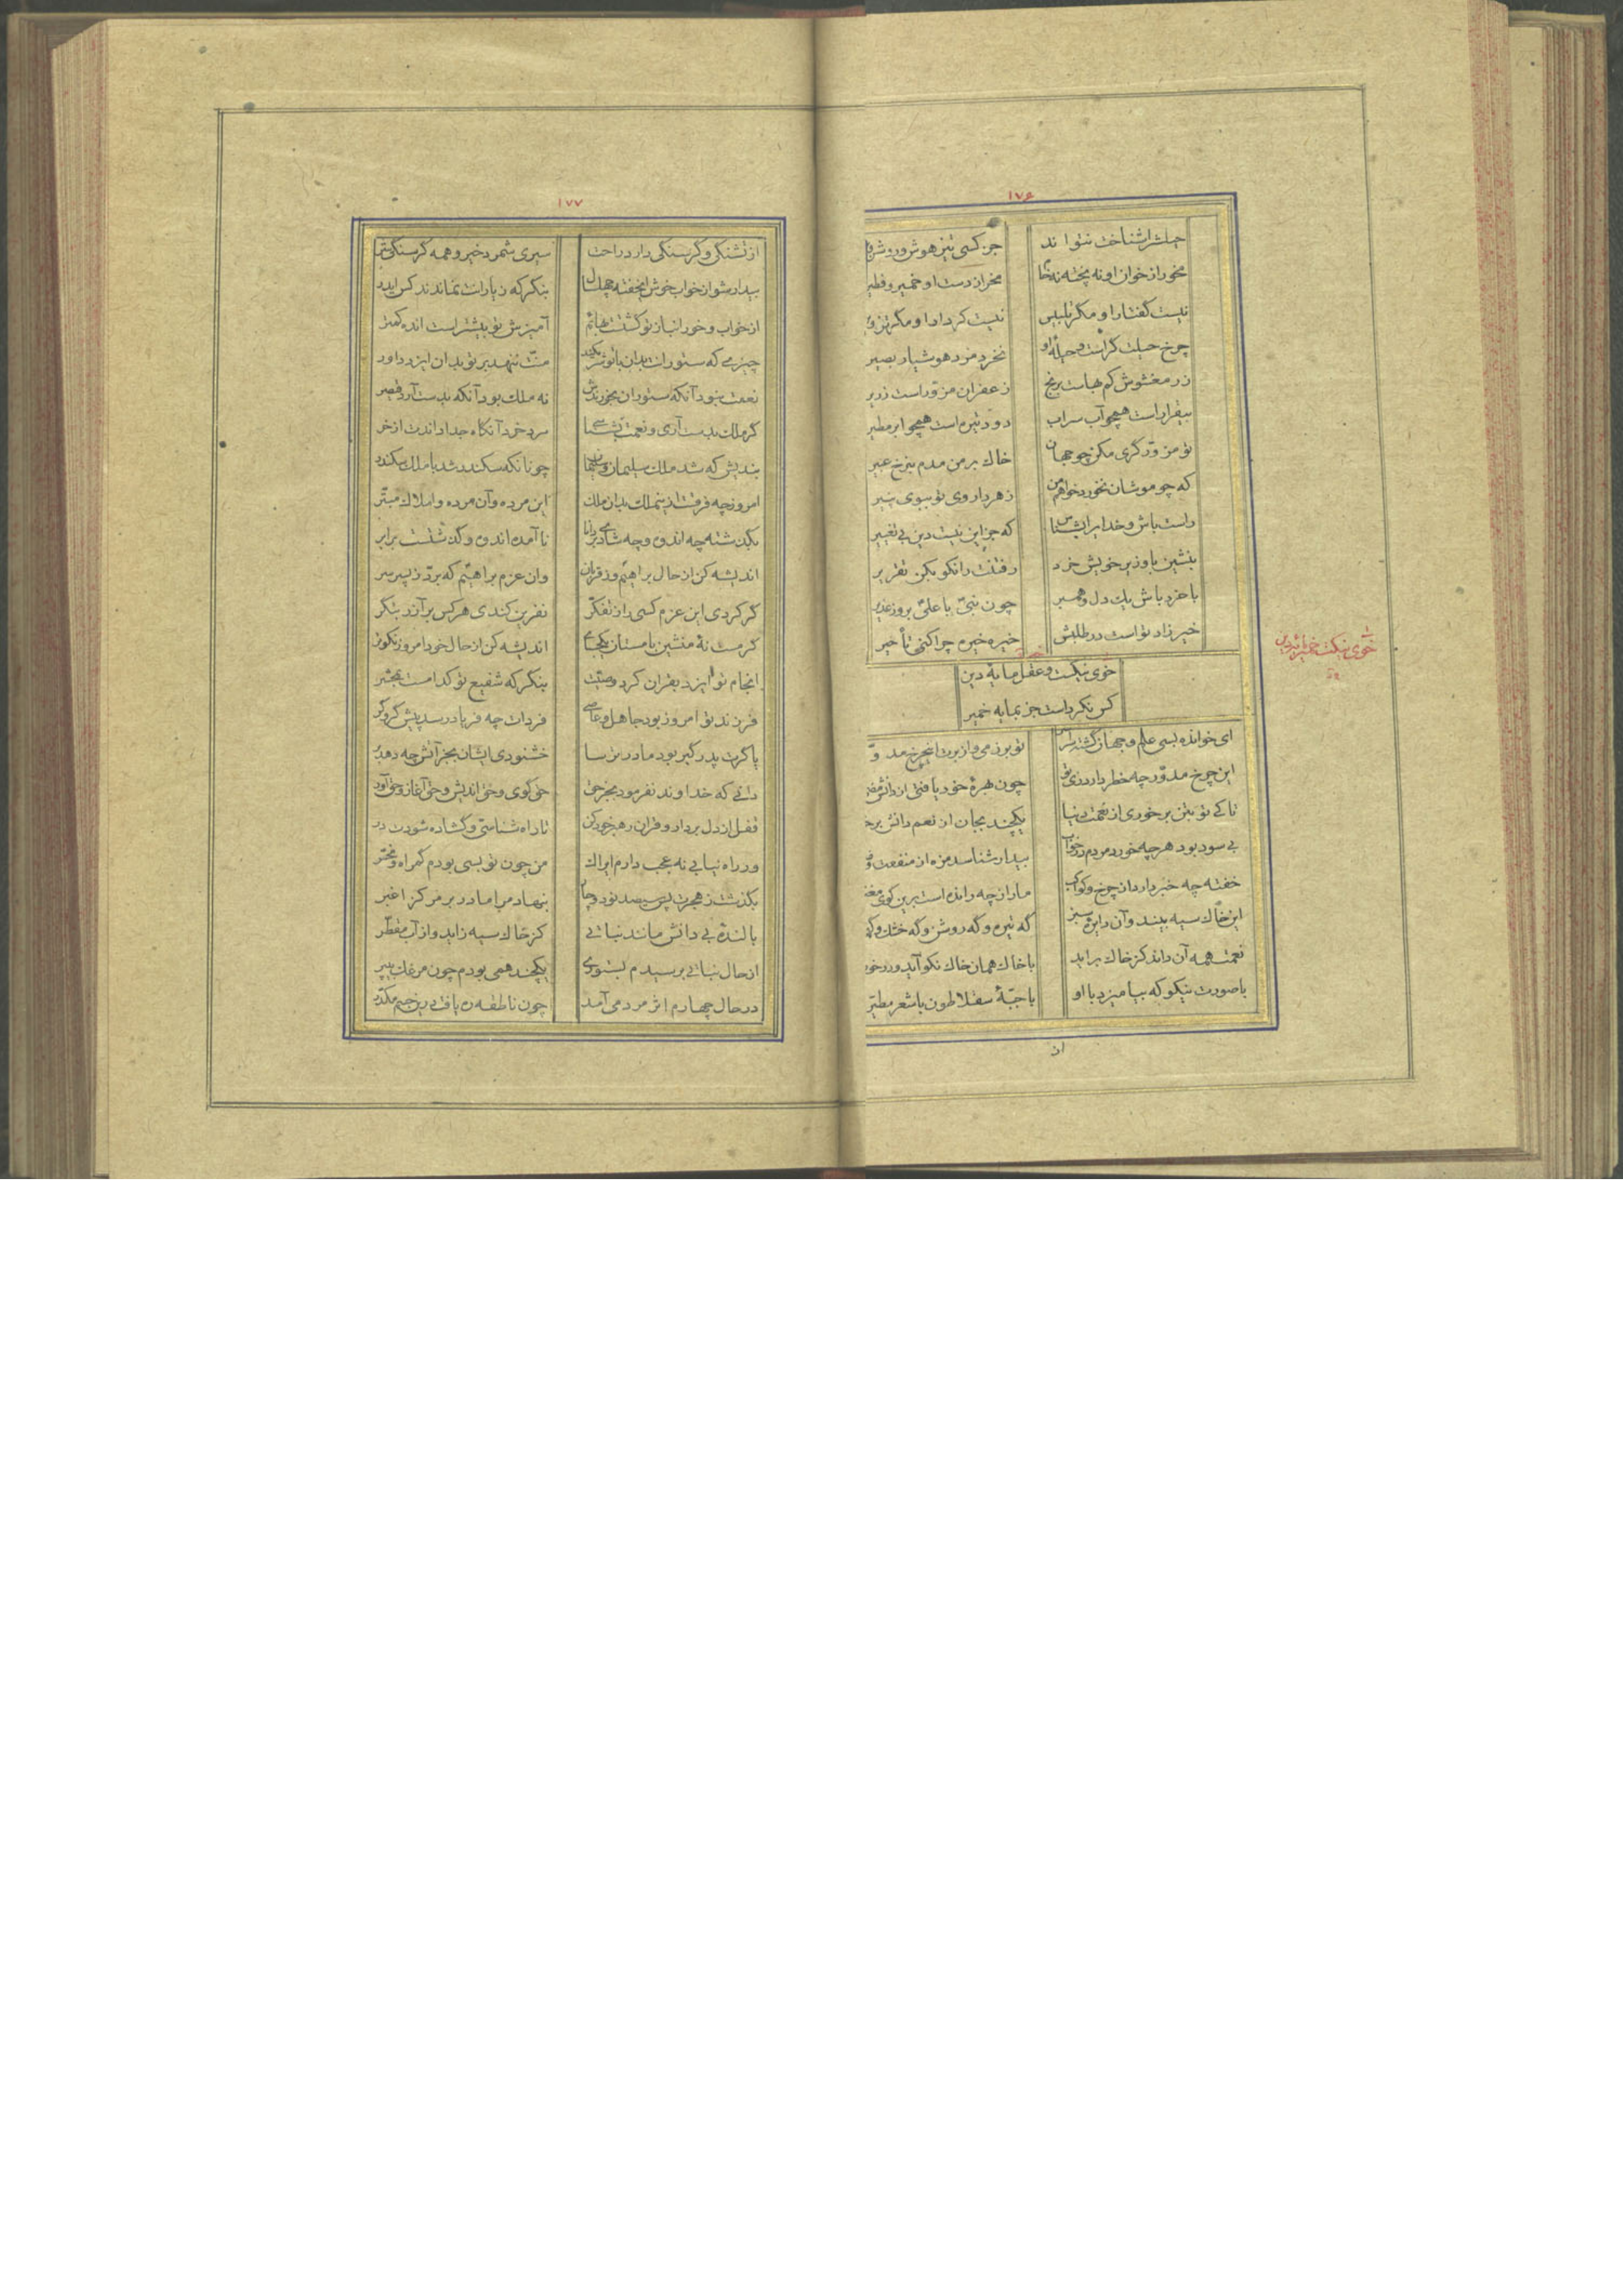 ١٧۶
حیلتش را شناخت نتواند
جز کسی تیز هوش و روشن
مخور از خوان او نه پخته نه خام
مخر از دست او خمیر و فطیر
نیست گفتار او مگر تلبیس
نیست کردار او مگر تزویر
چرخ حیلت گراست و حیلهٔ او
نخرد مرد هوشیار بصیر
زر مغشوش کم بهاست برنج
زعفران مزور است زریر
بیقرار است همچو آب سراب
دود تیره است همچو ابر مطیر
تو مزور گری مکن چو جهان
خاک بر من مدم بنرخ عبیر
که چو موشان نخورد خواهم من
زهر داروی تو ببوی پنیر
راست باش و خدایرا بشناس
که جز این نیست دین بی تغییر
بنشین با وزیر خویش خرد
رفتنت را نکو بکن تقریر
با خرد باش یک دل و همبر
چون نبی با علی بروز غدیر
خیر زاد تو است در طلبش
خیره خیره چرا کنی تأخیر
خوی نیکست و عقل مایهٔ دین
کس نکرد است جز بمایه خمیر
خوی نیکست
ای خوانده بسی علم و جهان گشته سراسر
تو بر زمی و از برت این چرخ مدور
این چرخ مدور چه خطر دارد زی تو
چون بهرهٔ خود یافتی از دانش
تا کی تو بتن بر خوری از نعمت دنیا
یکچند بجان از نعم دانش بر
بی سود بود هرچه خورد مردم در خواب
بیدار شناسد مزه از منفعت و
خفته چه خبر دارد از چرخ و کواکب
دادار چه رانده است برین گوی
این خاک سیه بیند و آن دایره سبز
گه تیره و گه روشن و گه خشک و گه
نعمت همه آن داند کز خاک برآید
با خاک همان خاک نکو آید و در خور
با صورت نیکو که بیامیزد با او
با جبهٔ سقلاطون با شعر مطیر
از
١٧٧
از تشنگی و گرسنگی دارد راحت
سیری شمرد خیر و همه گرسنگی شر
بیدار شو از خواب خوش ای خفته چهل سال
بنگر که ز یارانت نماندند کس ایدر
از خواب و خور انباز تو گشتست بهائم
آمیزش تو بیشتر است انده کمتر
چیزی که ستورانت بدان با تو شریکند
منت ننهد بر تو بدان ایزد داور
نعمت نبود آنکه ستوران بخورندش
نه ملک بود آنکه بدست آرد قیصر
گر ملک بدست آری و نعمت بشناسی
مرد خرد آنگاه جدا داندت از خر
بندیش که شد ملک سلیمان و سلیمان
چونانکه سکندر شد با ملک سکندر
امروز چه فرقست از این ملک بدان ملک
این مرده و آن مرده و املاک مبتر
بگذشته چه اندوه و چه شادی بر دانا
نا آمده اندوه و گذشتست برابر
اندیشه کن از حال براهیم و ز قربان
وان عزم براهیم که برد ز پسر سر
گر کردی این عزم کسی ز آزر تفکر
نفرین کندی هرکس بر آزر بتگر
گر مست نهٔ منشین با مستان یکجا
اندیشه کن از حال خود امروز نکوتر
انجام تو ایزد بقران کرد وصیت
بنگر که شفیع تو کدامست بمحشر
فرزند تو امروز بود جاهل و عاصی
فردات چه فریاد رسد پیش گروگر
یا گرت پدر گبر بود مادر ترسا
خشنودی ایشان بجز آتش چه دهد بر
دانی که خداوند نفرمود بجز حق
حق گوی و حق اندیش و حق آغاز و حق آور
قفل از دل بردار و قران رهبر خود کن
تا راه شناسی و گشاده شودت در
ور راه نیابی نه عجب دارم ایراک
من چون تو بسی بودم گمراه و محیر
بگذشت ز هجرت پس سیصد نود و چار
بنهاد مرا مادر بر مرکز اغبر
بالندهٔ بی دانش مانند نباتی
کز خاک سیه زاید و از آب مقطر
از حال نباتی برسیدم بستوری
یکچند همی بودم چون مرغک بی پر
در حال چهارم اثر مردمی آمد
چون ناطقه ره یافت درین جسم مکدر